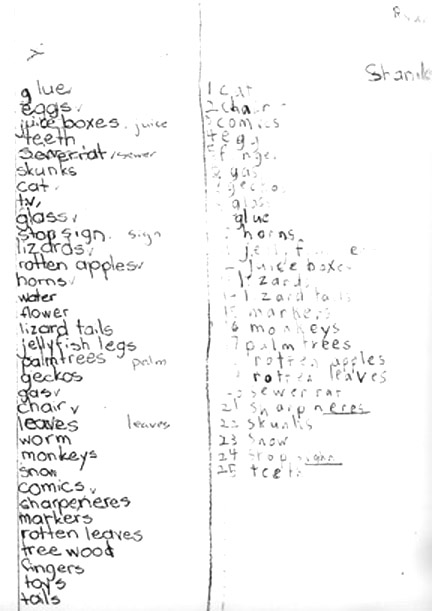 Shanik
glue
eggs
juice boxes juice
teeth
sewer rat sewer
skunks
cat
tv
glass
stop sign sign
lizards
rotten apples
horns
water
flower
lizard tails
jellyfish legs
palmtrees palm
geckos
gas
chair
leaves leaves
worm
monkeys
snow
comics
sharpeneres
markers
rotten leaves
tree wood
fingers
toys
tails
1 cat
2 chair
3 comics
4 egg
gas
glue
horns
juice boxe
lizard
lizard tails
15 markers
16 monkeys
7 palmtrees
rotten apples
rotten leaves
sewer rat
21 sharpneres
22 skunks
23 snow
24 stop sign
25 teeth